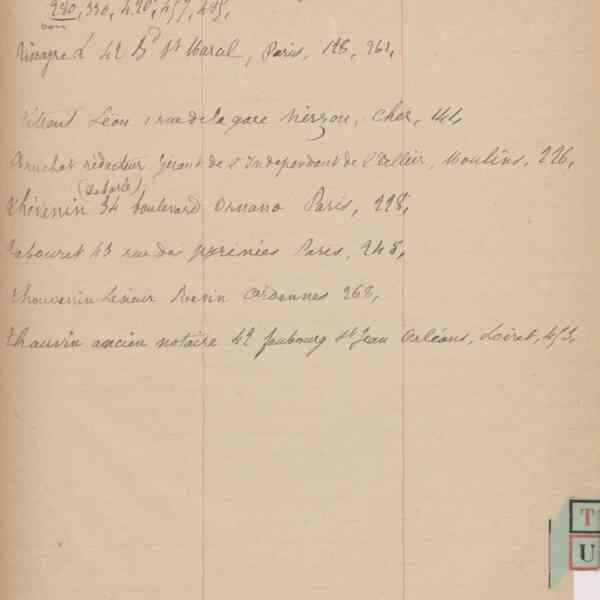 280, 330, 420, 457, 485,
bon
42 Bd St Marcel, Paris, 126, 261,
Léon 1 rue de la gare Vierzon, Cher, 141,
rédacteur Gérant de l'Indépendant de l'Allier, Moulins, 226,
Thévenin 34 boulevard Ornano Paris, 228,
Tabouret 43 rue des pyrénées Paris, 248,
Thouvenin Revin Ardennes 268,
Thauvin ancien notaire 42 faubourg St Jean Orléans, Loiret, 453,
T
U